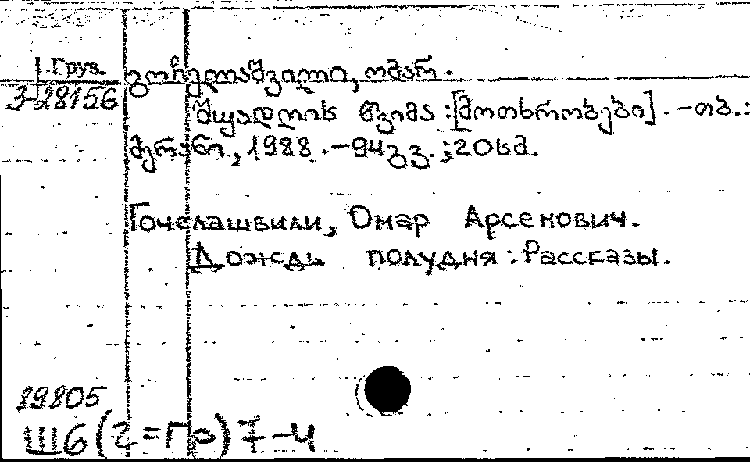 Груз.
3-28156
გოჩელაშვილი, ომარ.
შუადღის წვიმა : [მოთხრობები]. - თბ.:
მერანი, 1988. - 94გვ. ; 20სმ.
Гочелашвили, Омар Арсенович.
Дождь полудня : Рассказы.
89805
Ш6(2=Гр)7-4